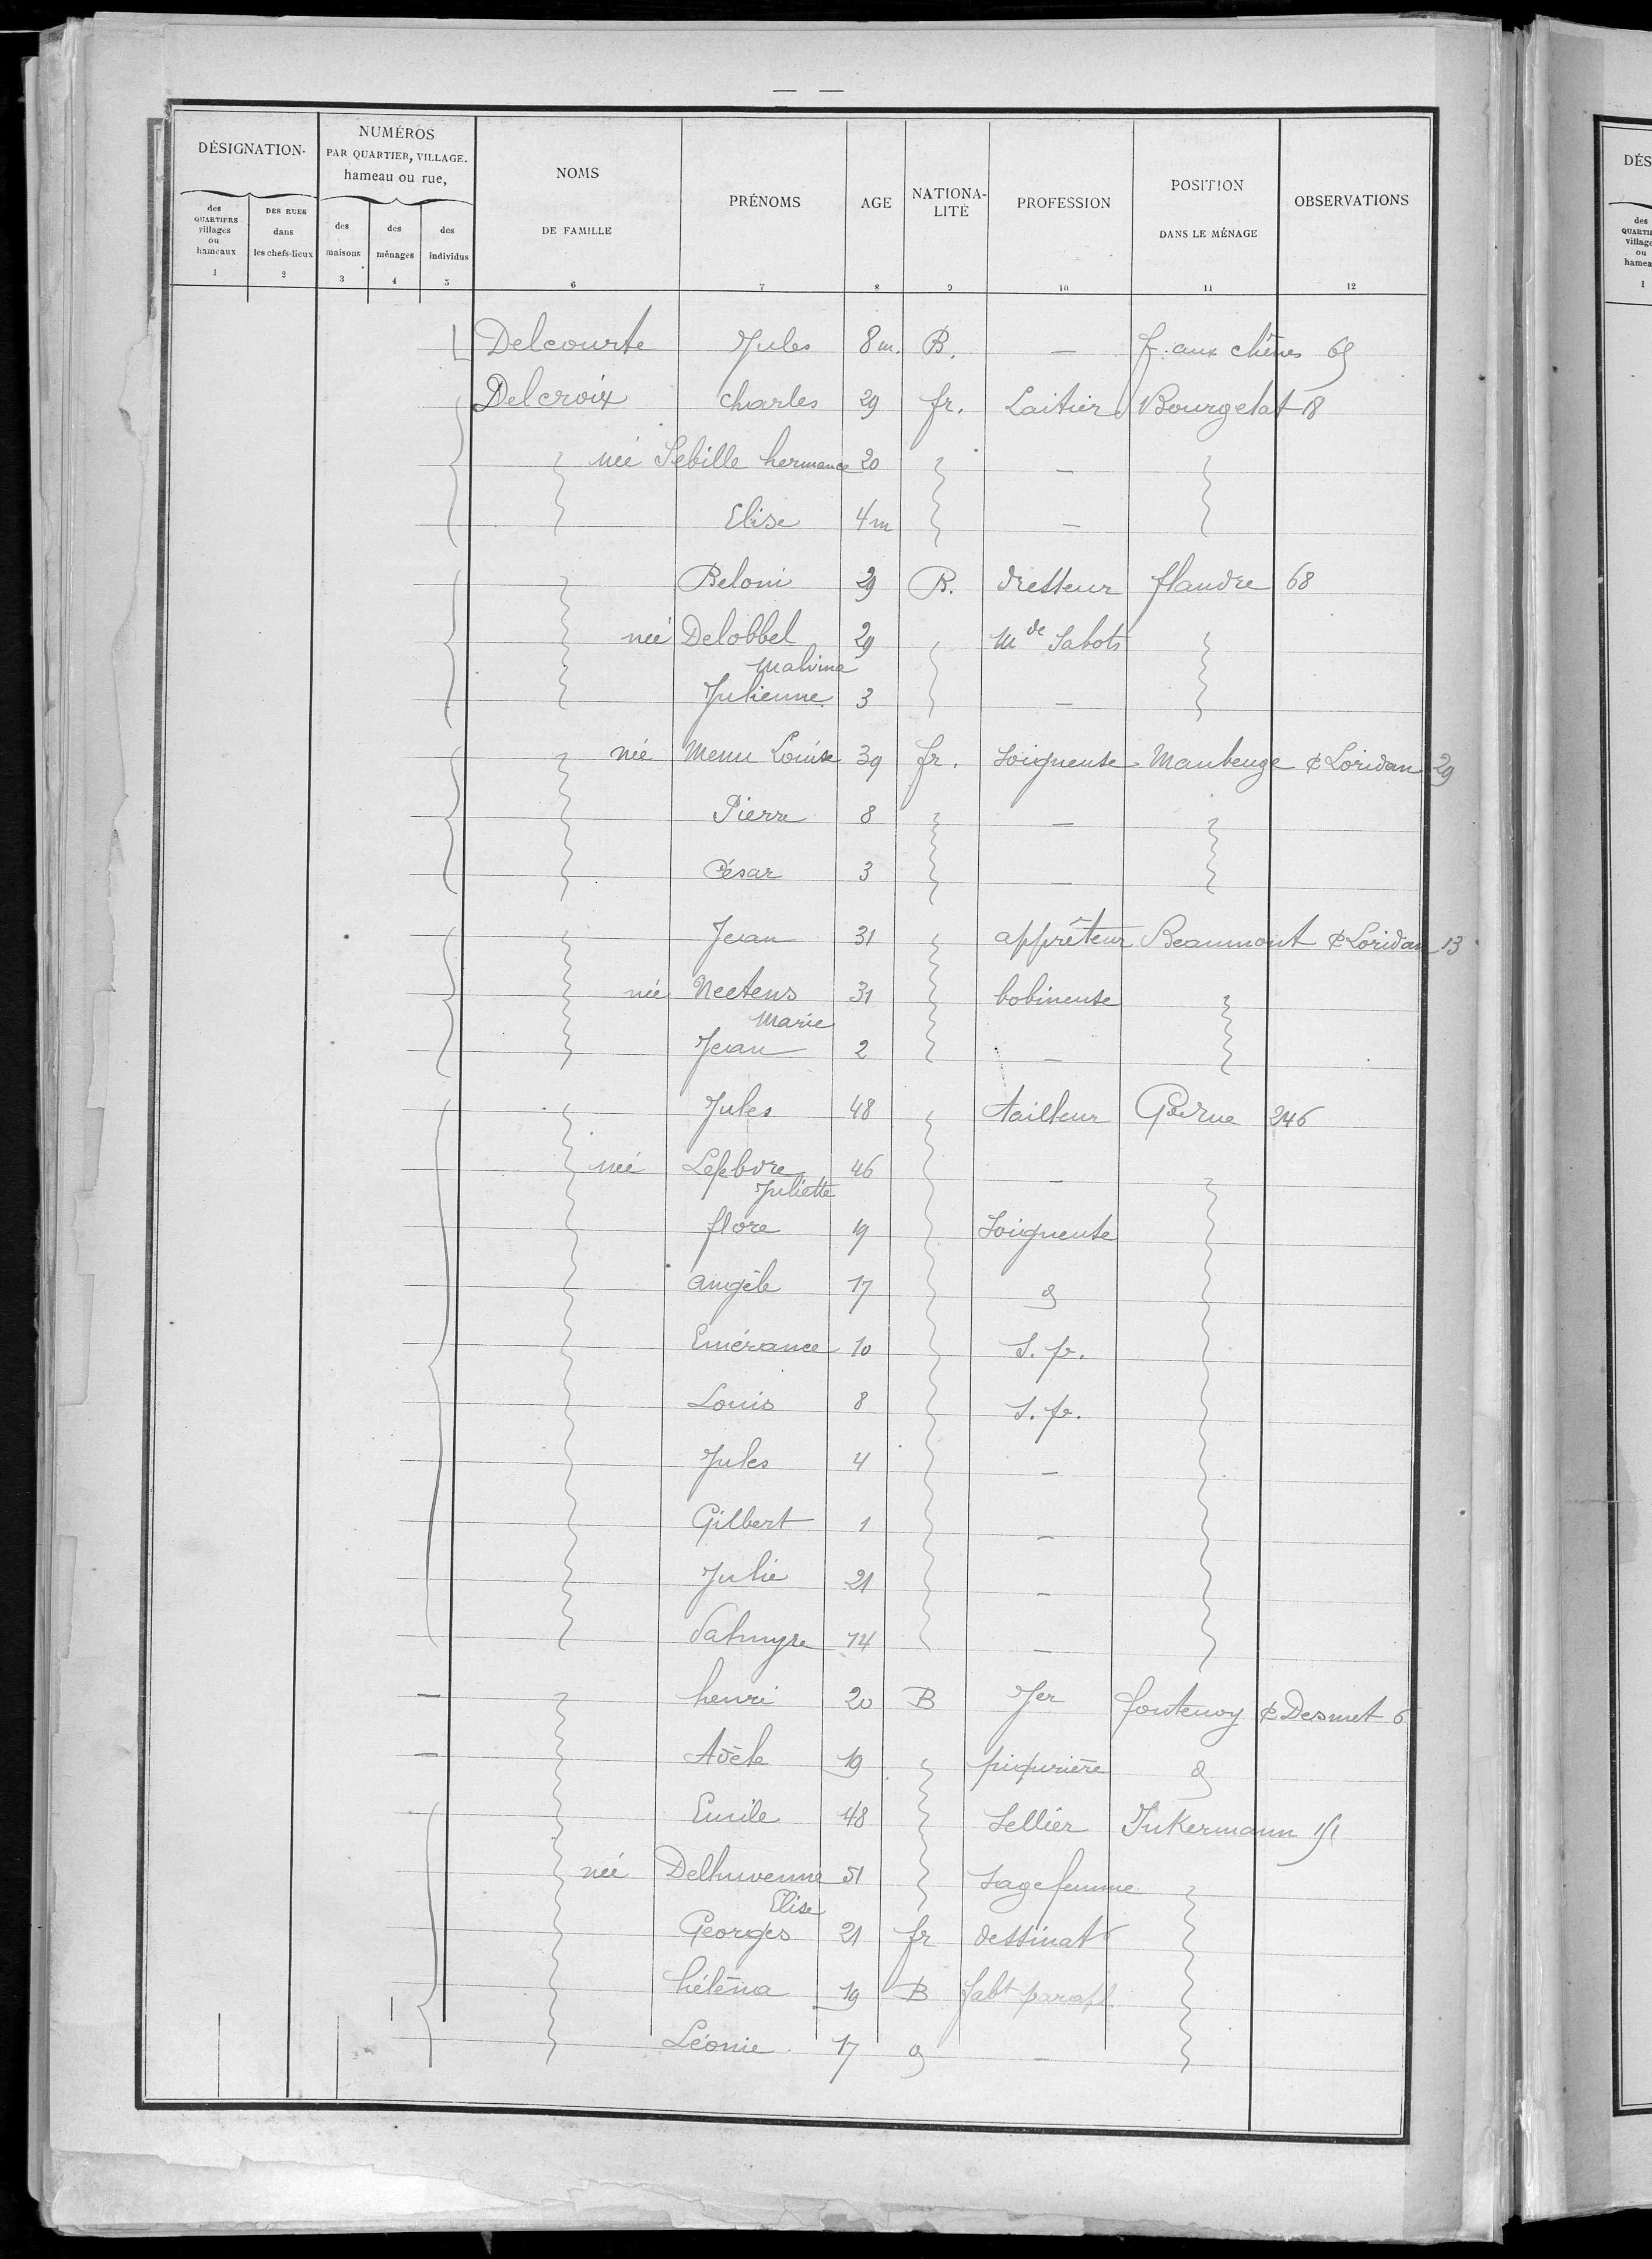 DÉSIGNATION.
NUMÉROS
PAR QUARTIER, VILLAGE.
hameau ou rue,
NOMS
DE FAMILLE
PRÉNOMS
AGE
NATIONA-
LITÉ
PROFESSION
POSITION
DANS LE MÉNAGE
OBSERVATIONS
des
QUARTIERS
villages
ou
hameaux
DES RUES
dans
les chefs-lieux
des
maisons
des
ménages
des
individus
1 2 3 4 5 6 7 8 9 10 11 12
Delcourte Jules 8 m. B. — f. aux chênes 65
Delcroix Charles 29 fr. Laitier Bourgelat 18
née Sebille hermance 20 —
Elise 4 m —
Beloni 29 B. dresseur flandre 68
née Delobbel 29 Mde Sabots
Malvina
Julienne 3 —
née Menu Louise 39 fr. soigneuse Maubeuge c Loridan 29
Pierre 8 —
César 3 —
Jean 31 apprêteur Beaumont c Loridan 13
née Neetens 31 bobineuse
Marie
Jean 2 —
Jules 48 tailleur Gde rue 246
née Lefebvre 46 —
Juliette
flore 19 Soigneuse
angèle 17 d
Emérance 10 S. pr.
Louis 8 S. pr.
Jules 4 —
Gilbert 1 —
Julie 21 —
Palmyre 14 —
henri 20 B Jer fontenoy c Desmet 6
Adèle 19 piqurière d
Emile 48 Sellier Inkermann 151
née Delhuvenne 51 Sage femme
Elise
Georges 21 fr dessinatr
héléna 19 B fabt parapl.
Léonie 17 d —
DÉS
des
QUARTIE
village
ou
hamea
1